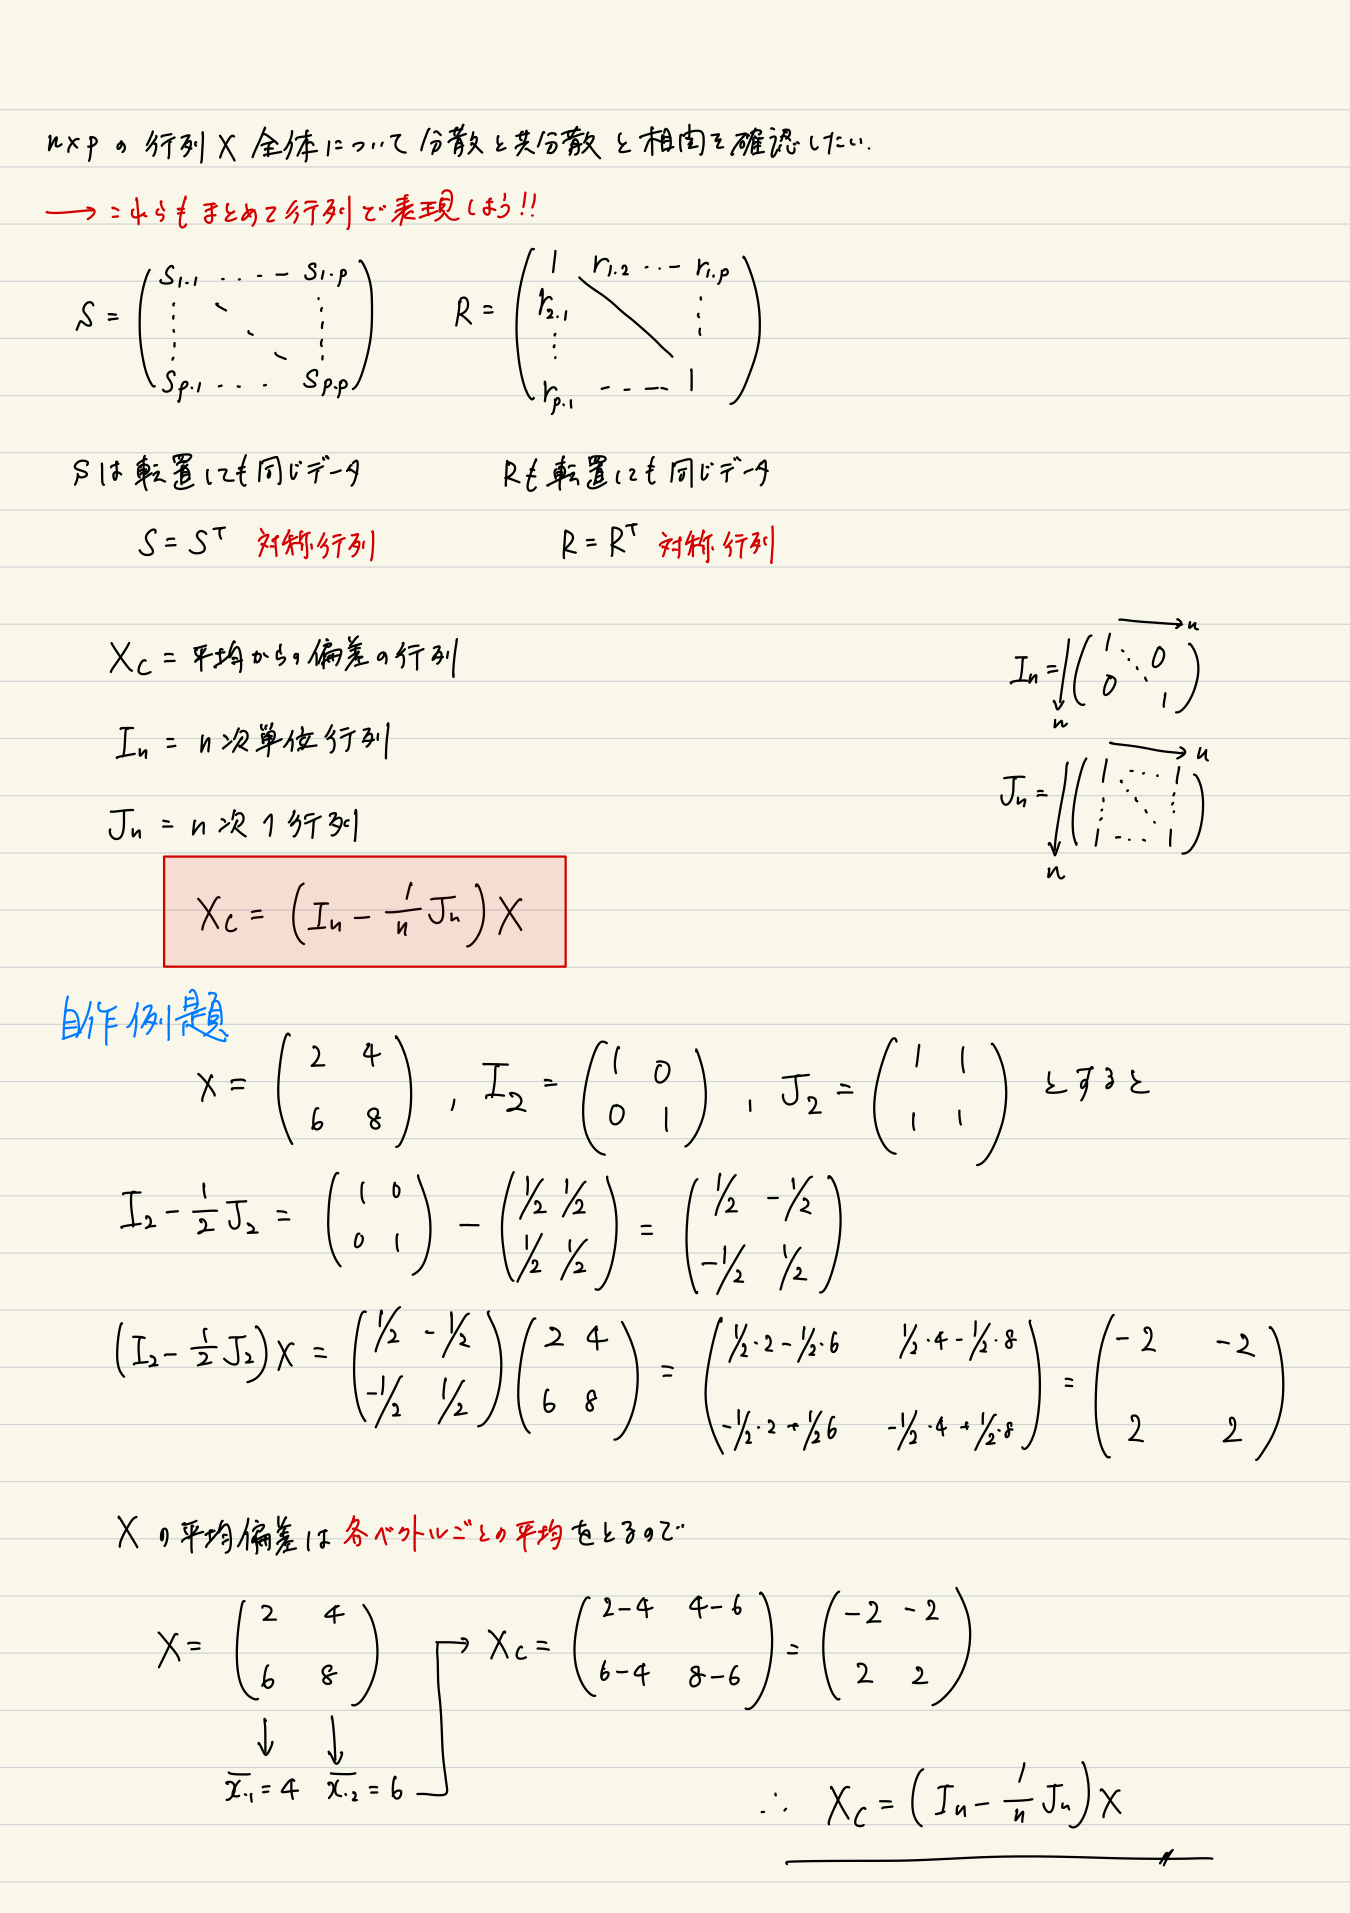 n×pの行列X全体について分散と共分散と相関を確認したい.
→ これらもまとめて行列で表現しよう!!
S = ( s1.1 ‥‥ s1.p ⋮ ⋱ ⋮ sp.1 ‥‥ sp.p )   R = ( 1 r1.2 ‥‥ r1.p r2.1 ⋱ ⋮ ⋮ rp.1 ‥‥ 1 )
Sは転置しても同じデータ   Rも転置しても同じデータ
S = S^T 対称行列   R = R^T 対称行列
Xc = 平均からの偏差の行列
In = n次単位行列
Jn = n次1行列
In = ( 1 ⋱ 0 0 1 ) →n ↓n
Jn = ( 1 ‥‥ 1 ⋮ ⋱ ⋮ 1 ‥‥ 1 ) →n ↓n
Xc = (In - 1/n Jn) X
自作例題
X = ( 2 4 6 8 ) , I2 = ( 1 0 0 1 ) , J2 = ( 1 1 1 1 ) とすると
I2 - 1/2 J2 = ( 1 0 0 1 ) - ( 1/2 1/2 1/2 1/2 ) = ( 1/2 -1/2 -1/2 1/2 )
(I2 - 1/2 J2) X = ( 1/2 -1/2 -1/2 1/2 ) ( 2 4 6 8 ) = ( 1/2・2 - 1/2・6 1/2・4 - 1/2・8 -1/2・2 + 1/2 6 -1/2・4 + 1/2・8 ) = ( -2 -2 2 2 )
Xの平均偏差は各ベクトルごとの平均をとるので
X = ( 2 4 6 8 ) → Xc = ( 2-4 4-6 6-4 8-6 ) = ( -2 -2 2 2 )
↓ ↓
x̄.1 = 4 x̄.2 = 6
∴ Xc = (In - 1/n Jn) X